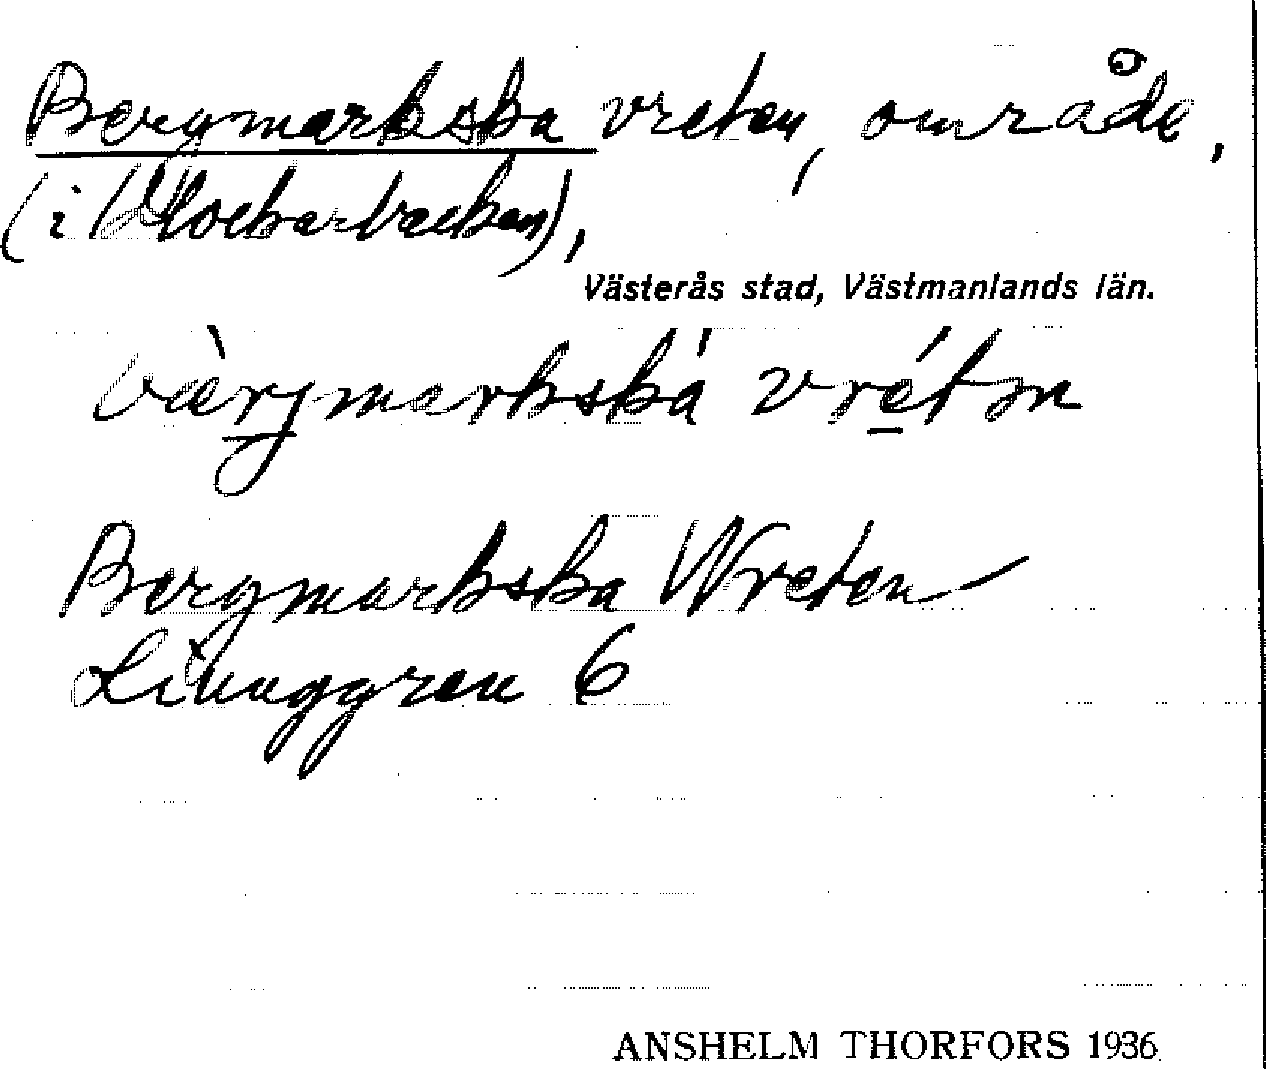 Bergmarkska vreten, område,
(i Klockarbacken),
Västerås stad, Västmanlands län.
bàrjmarkska' vrétn
Bergmarkska Wreten
Ljunggren 6
ANSHELM THORFORS 1936